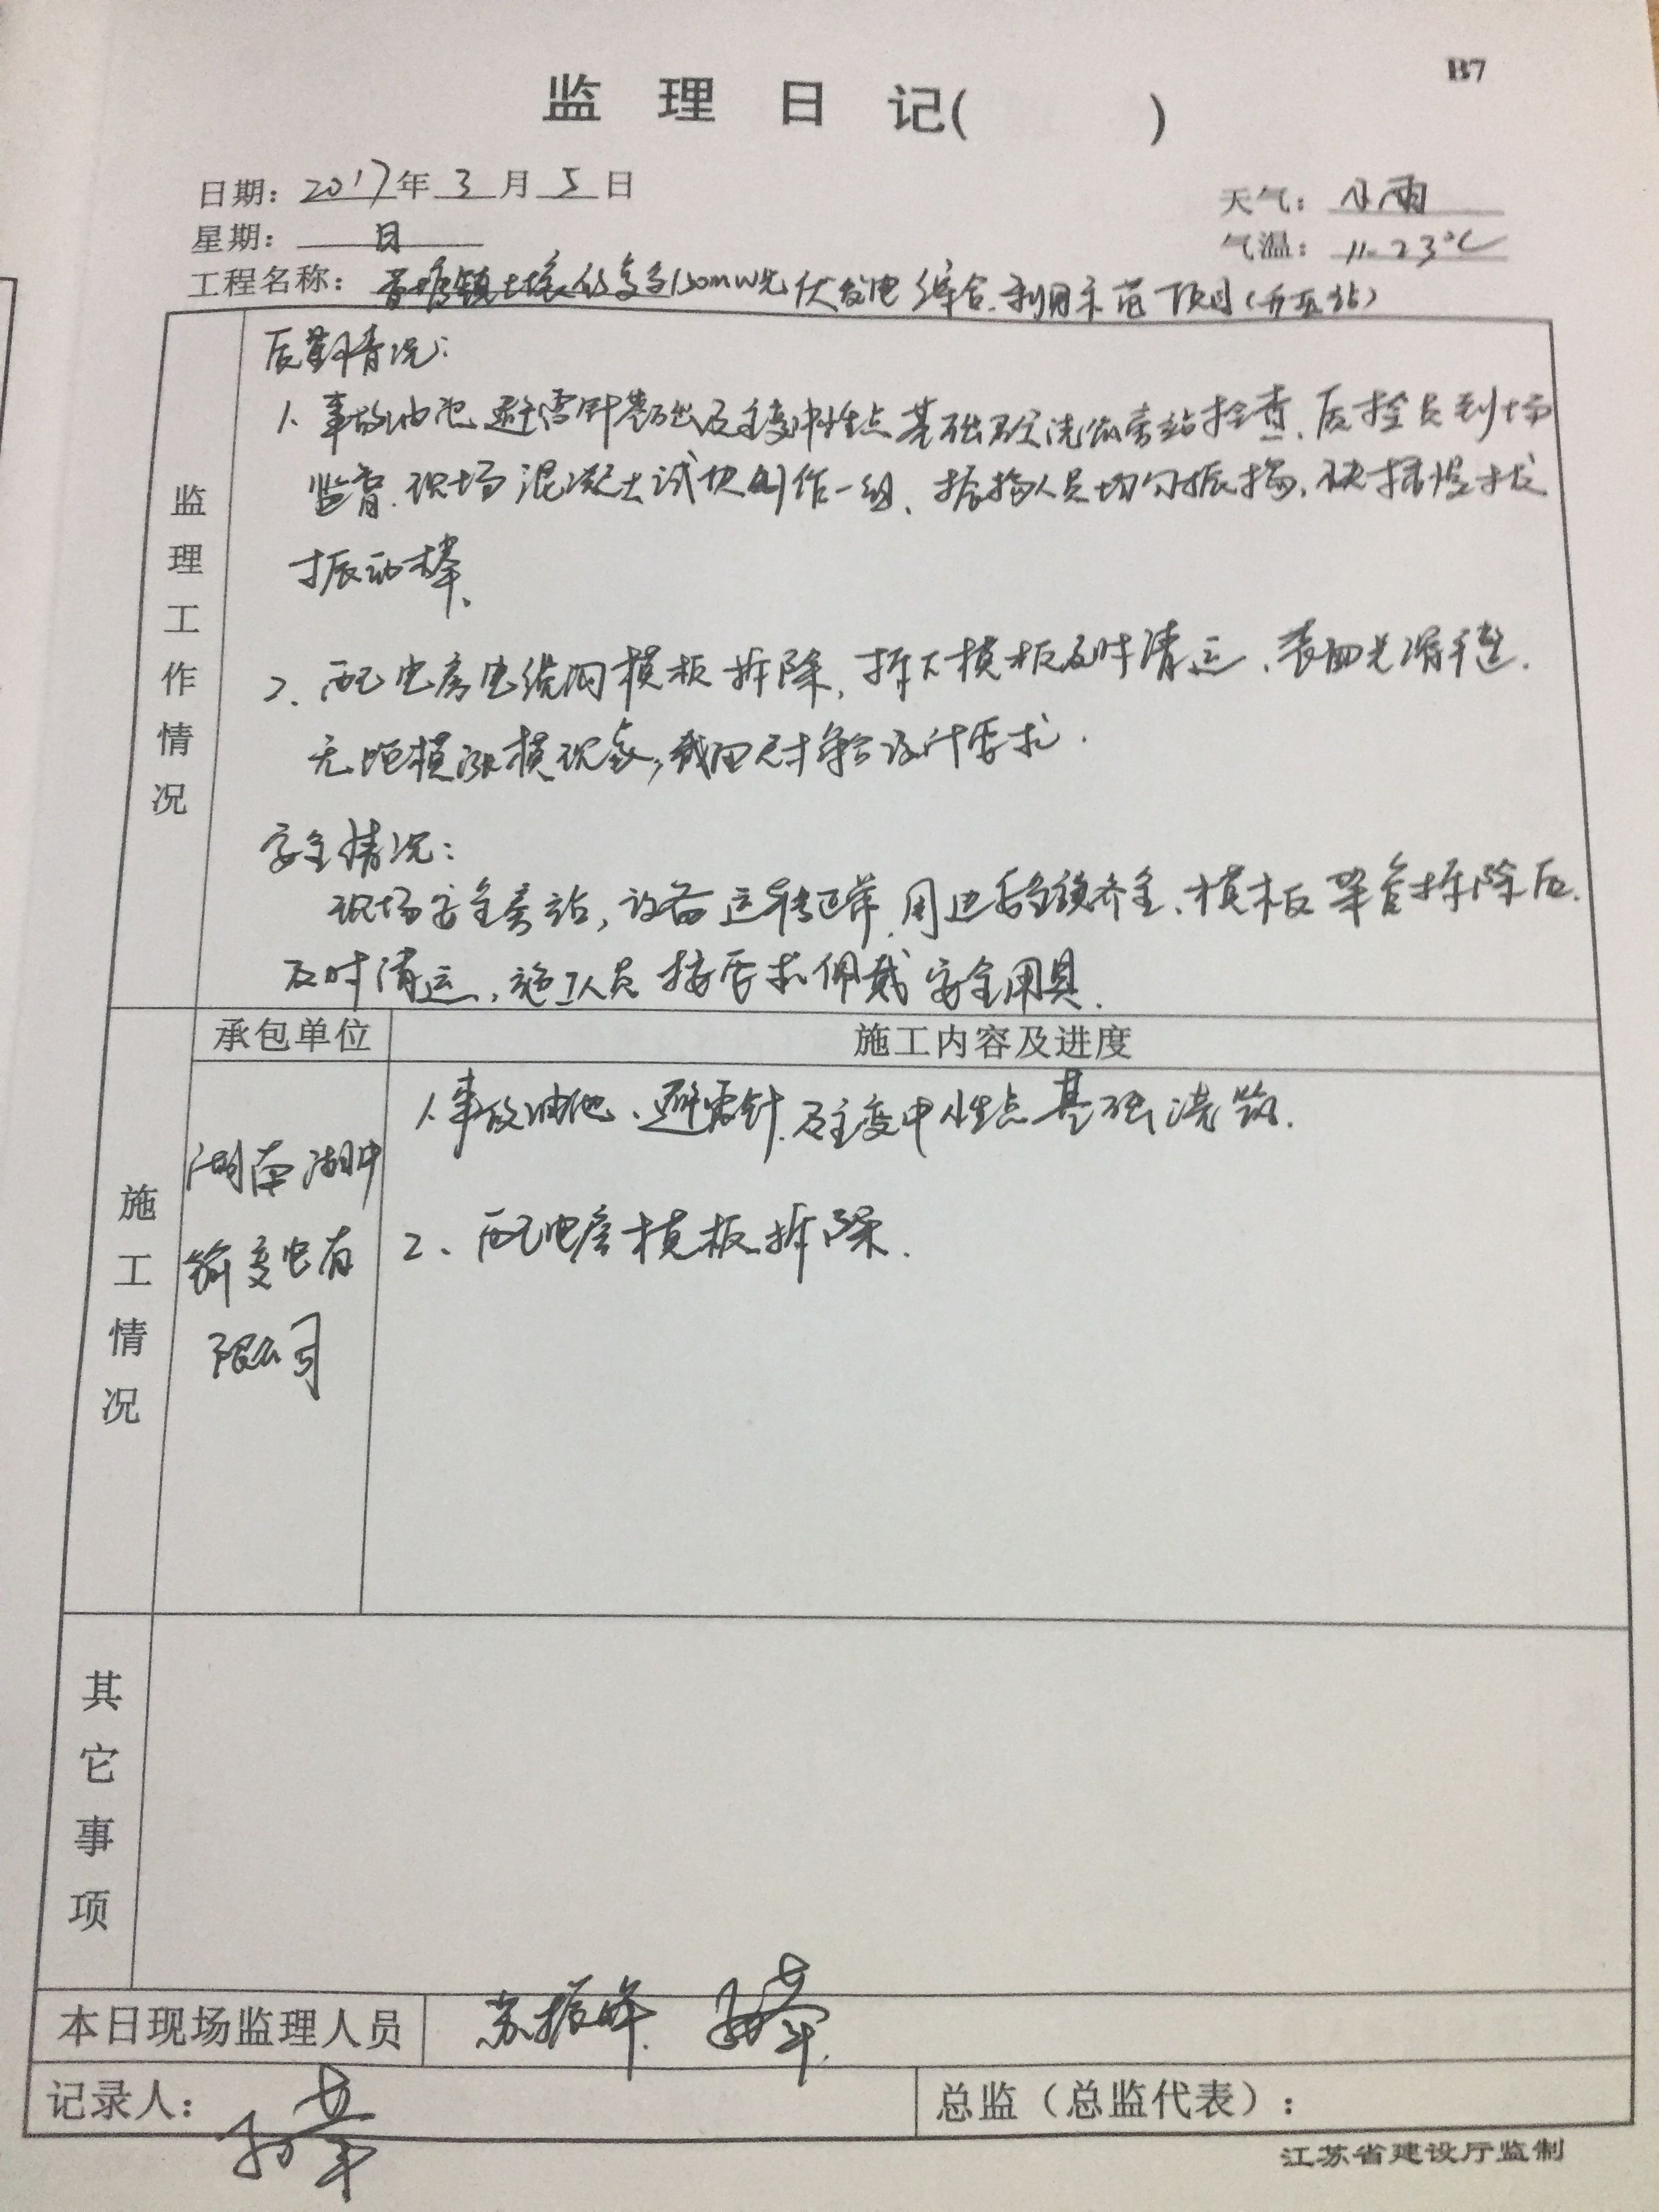 B7
监理日记( )
日期：2017年3月5日
天气：小雨
星期：日
气温：11-23℃
工程名称：150MW光伏发电综合利用示范项目(升压站)
监理工作情况
质量情况：
1、事故油池、避雷针基础及主变中性点基础砼浇筑旁站检查、质检员到场
监督、现场混凝土试块制作一组、振捣人员均匀振捣、快插慢拔
振动棒、
2、配电房电缆沟模板拆除，拆下模板及时清运、表面光滑平整.
无跑模涨模现象，截面尺寸符合设计要求.
安全情况：
现场安全旁站，设备运转正常，周边齐全、模板拆除后.
及时清运，施工人员按要求佩戴安全用具.
承包单位
施工内容及进度
施工情况
湖南湖中
输变电有
限公司
1、事故油池、避雷针、及主变中性点基础浇筑.
2、配电房模板拆除.
其它事项
本日现场监理人员 苏振
记录人：
总监（总监代表）：
江苏省建设厅监制